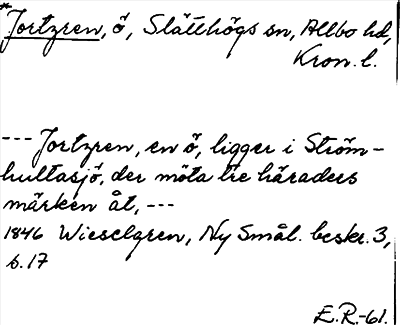 *Jortzren, ö, Slätthögs sn, Allbo hd,
Kron. l.
--- Jortzren, en ö, ligger i Ström-
hultasjö, der möta tre häraders
märken åt, ---
1846 Wieselgren, Ny Smål. beskr. 3,
s. 17
E.R.-61.